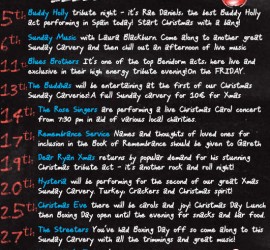 5th Buddy Holly tribute night - it's Rae Daniels, the best Buddy Holly
act performing in Spain today! Start Christmas with a bang!
6th Sunday Music with Laura Blackburn. Come along to another great
Sunday Carvery and then chill out an afternoon of live music
11th Blues Brothers It's one of the top Benidorm acts, here live and
exclusive in their high energy tribute evening! On the FRIDAY.
13th The Buddalls will be entertaining at the first of our Christmas
Sunday Carveries! A full Sunday carvery for 30% for Xmas
14th The Rose Singers are performing a live Christmas Carol concert
from 7:30 pm in aid of various local charities.
17th Remembrance Service Names and thoughts of loved ones for
inclusion in the Book of Remembrance should be given to Gareth
19th Dear Ryan Xmas returns by popular demand for his stunning
Christmas tribute act - it's another rock and roll night!
20th Hysteria will be performing for the second of our great Xmas
Sunday Carvery. Turkey, Crackers and Christmas spirit!
25th Christmas Eve there will be carols and joy! Christmas Day Lunch
then Boxing Day open until the evening for snacks and bar food.
27th The Streeters You've had Boxing Day off so come along to this
Sunday Carvery with all the trimmings and great music!